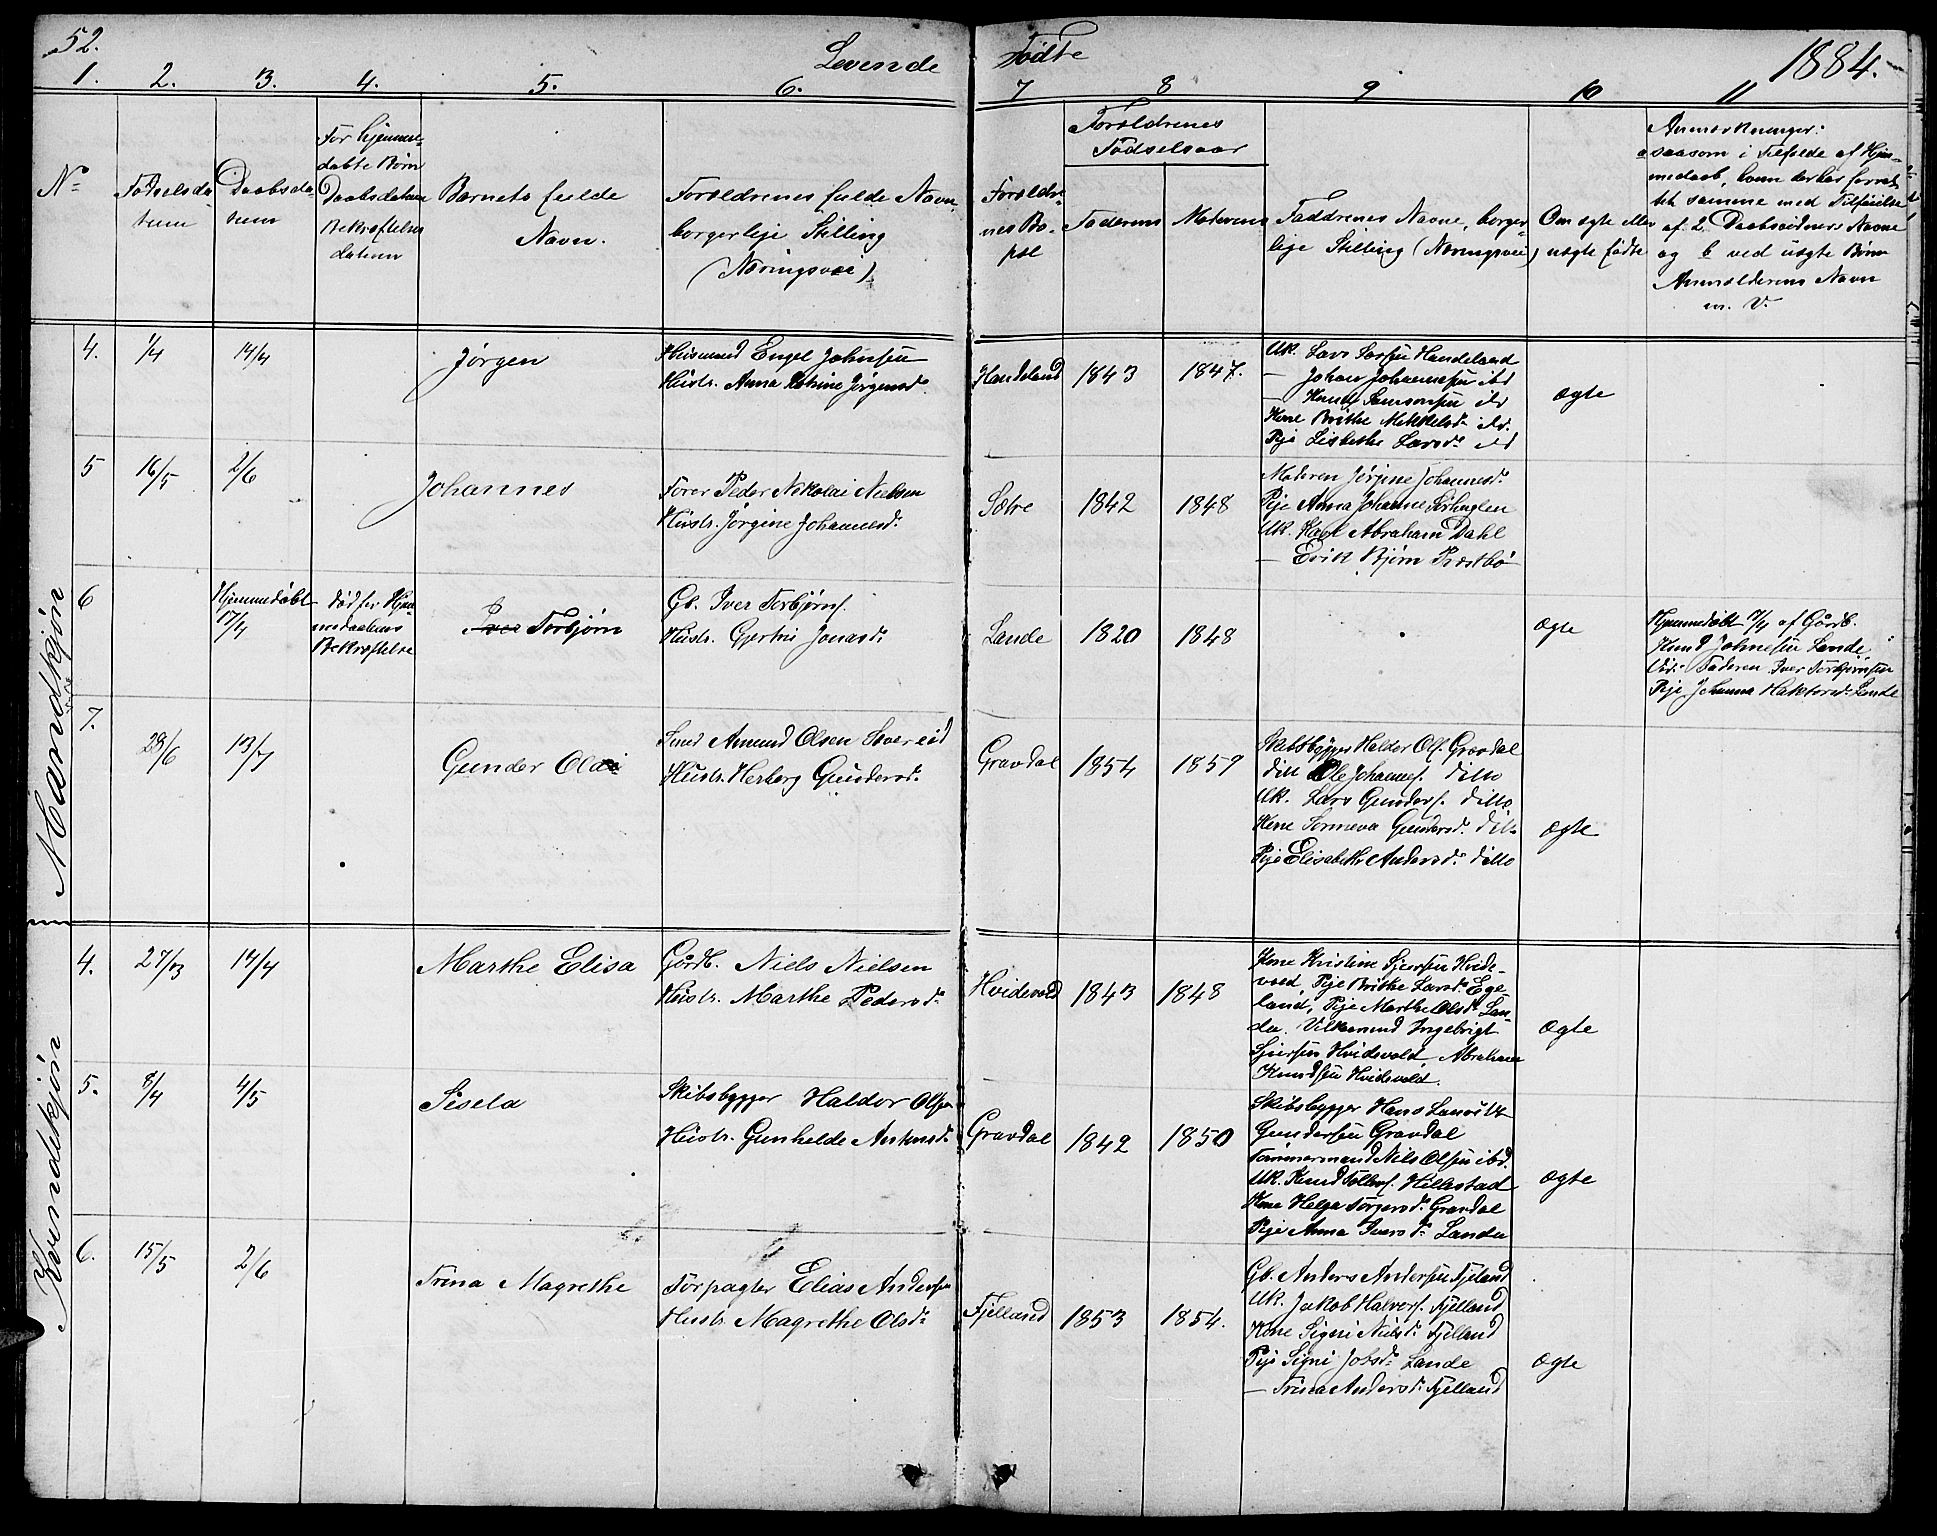 52.
Levende Fødte
1884.
1. 2. 3. 4. 5. 6. 7 8 9 10 11
No
Fødselsda-
tum
Daabsda-
tum
For hjemme-
døbte Børn
Daabsdatum
Bekræftelses
datum
Barnets fulde
Navn.
Forældrenes fulde Navn,
borgerlige Stilling
(Næringsvei)
Forældre-
nes Bo-
pæl
Forældrenes
Fødselsaar
Faderens
Moderens
Faddrenes Navne, borger-
lige Stilling (Næringsvei)
Om ægte eller
uægte fødte
Anmærkninger:
a saasom i Tilfælde af Hjem-
medaab, hvem der har forret-
tet samme med Tilføielse
af 2 Daabsvidners Navne
og b ved uægte Børn
Anmelderens Navn
m. V.
Mandkjøn
4. 1/4 14/4
Jørgen
Husmand Engel Johnsen
Hustr. Anna Katrine Jørgensd.
Handeland 1843 1847.
Uk. Lars Larsen Handeland
— Johan Johannesen ibd
— Knud Samsonsen ibd
Kone Brithe Mikkelsd. ibd.
Pige Lisbethe Larsd. ibd
ægte
5 16/5 2/6
Johannes
Fører Peder Nikolai Nielsen
Hustr. Jørgine Johannesd.
Sætre 1842 1848
Moderen Jørgine Johannesd.
Pige Anna Johanne
Uk. Karl Abraham Dahl
— Erik Bjørn Præstbø
6
Hjemmedøbt
17/4
død før Hjem-
medaabens
Bekræftelse
Iver Torbjørn
Gb. Iver Torbjørns.
Hustr. Gjertrui Jonasd.
Lande 1820 1848
ægte
Hjemmedøbt 17/4 af Gårdb.
Knud Johnesen Lande
Vid: Faderen Iver Torbjørnsen
Pige Johanna Lande
7.
28/6 13/7
Gunder Olai
Smed Amund Olsen Svereid
Hustr. Herborg Gundersd.
Gravdal 1854 1859
Skibsbygger Haldor Ols. Gravdal
ditt Ole Johannes. ditto
Uk. Lars Gunders. ditto
Kone Sermeva Gundersd. ditto
Pige Elisabeth Andersd. ditto
ægte
Kvindekjøn
4. 27/3 14/4
Marthe Elisa
Gårdb. Niels Nielsen
Hustr. Marthe Pedersd.
Hvidevold 1843 1848
Kone Kristine Sjursen Hvide-
vold, Pige Brithe Larsd. Ege-
land, Pige Marthe Olsd. Lan-
de. Ungkarmand Ingebrigt
Sjursen Hvidevold Abraham
Knudsen Hvidevold.
ægte
5. 8/4 4/5
Sisela
Skibsbygger Haldor Olsen
Hustr. Gunhilde Antonsd.
Gravdal 1842 1850
Skibsbygger Hans Lauritz
Gundersen Gravdal
Tømmermand Nils Olsen ibd.
Uk. Knud Tollevs. Hillestad
Kone Helga Torgersd. Gravdal
Pige Anna Iversd. Lande
ægte
6. 15/5 2/6
Trina Magrethe
Forpagter Elias Andersen
Hustr. Magrethe Olsd.
Fjelland 1853 1854.
Gb. Anders Andersen Fjelland
Uk. Jakob Halvors. Fjelland
Kone Signi Nilsd. Fjelland
Pige Signi Jobsd. Lande
— Trina Andersd. Fjelland
ægte